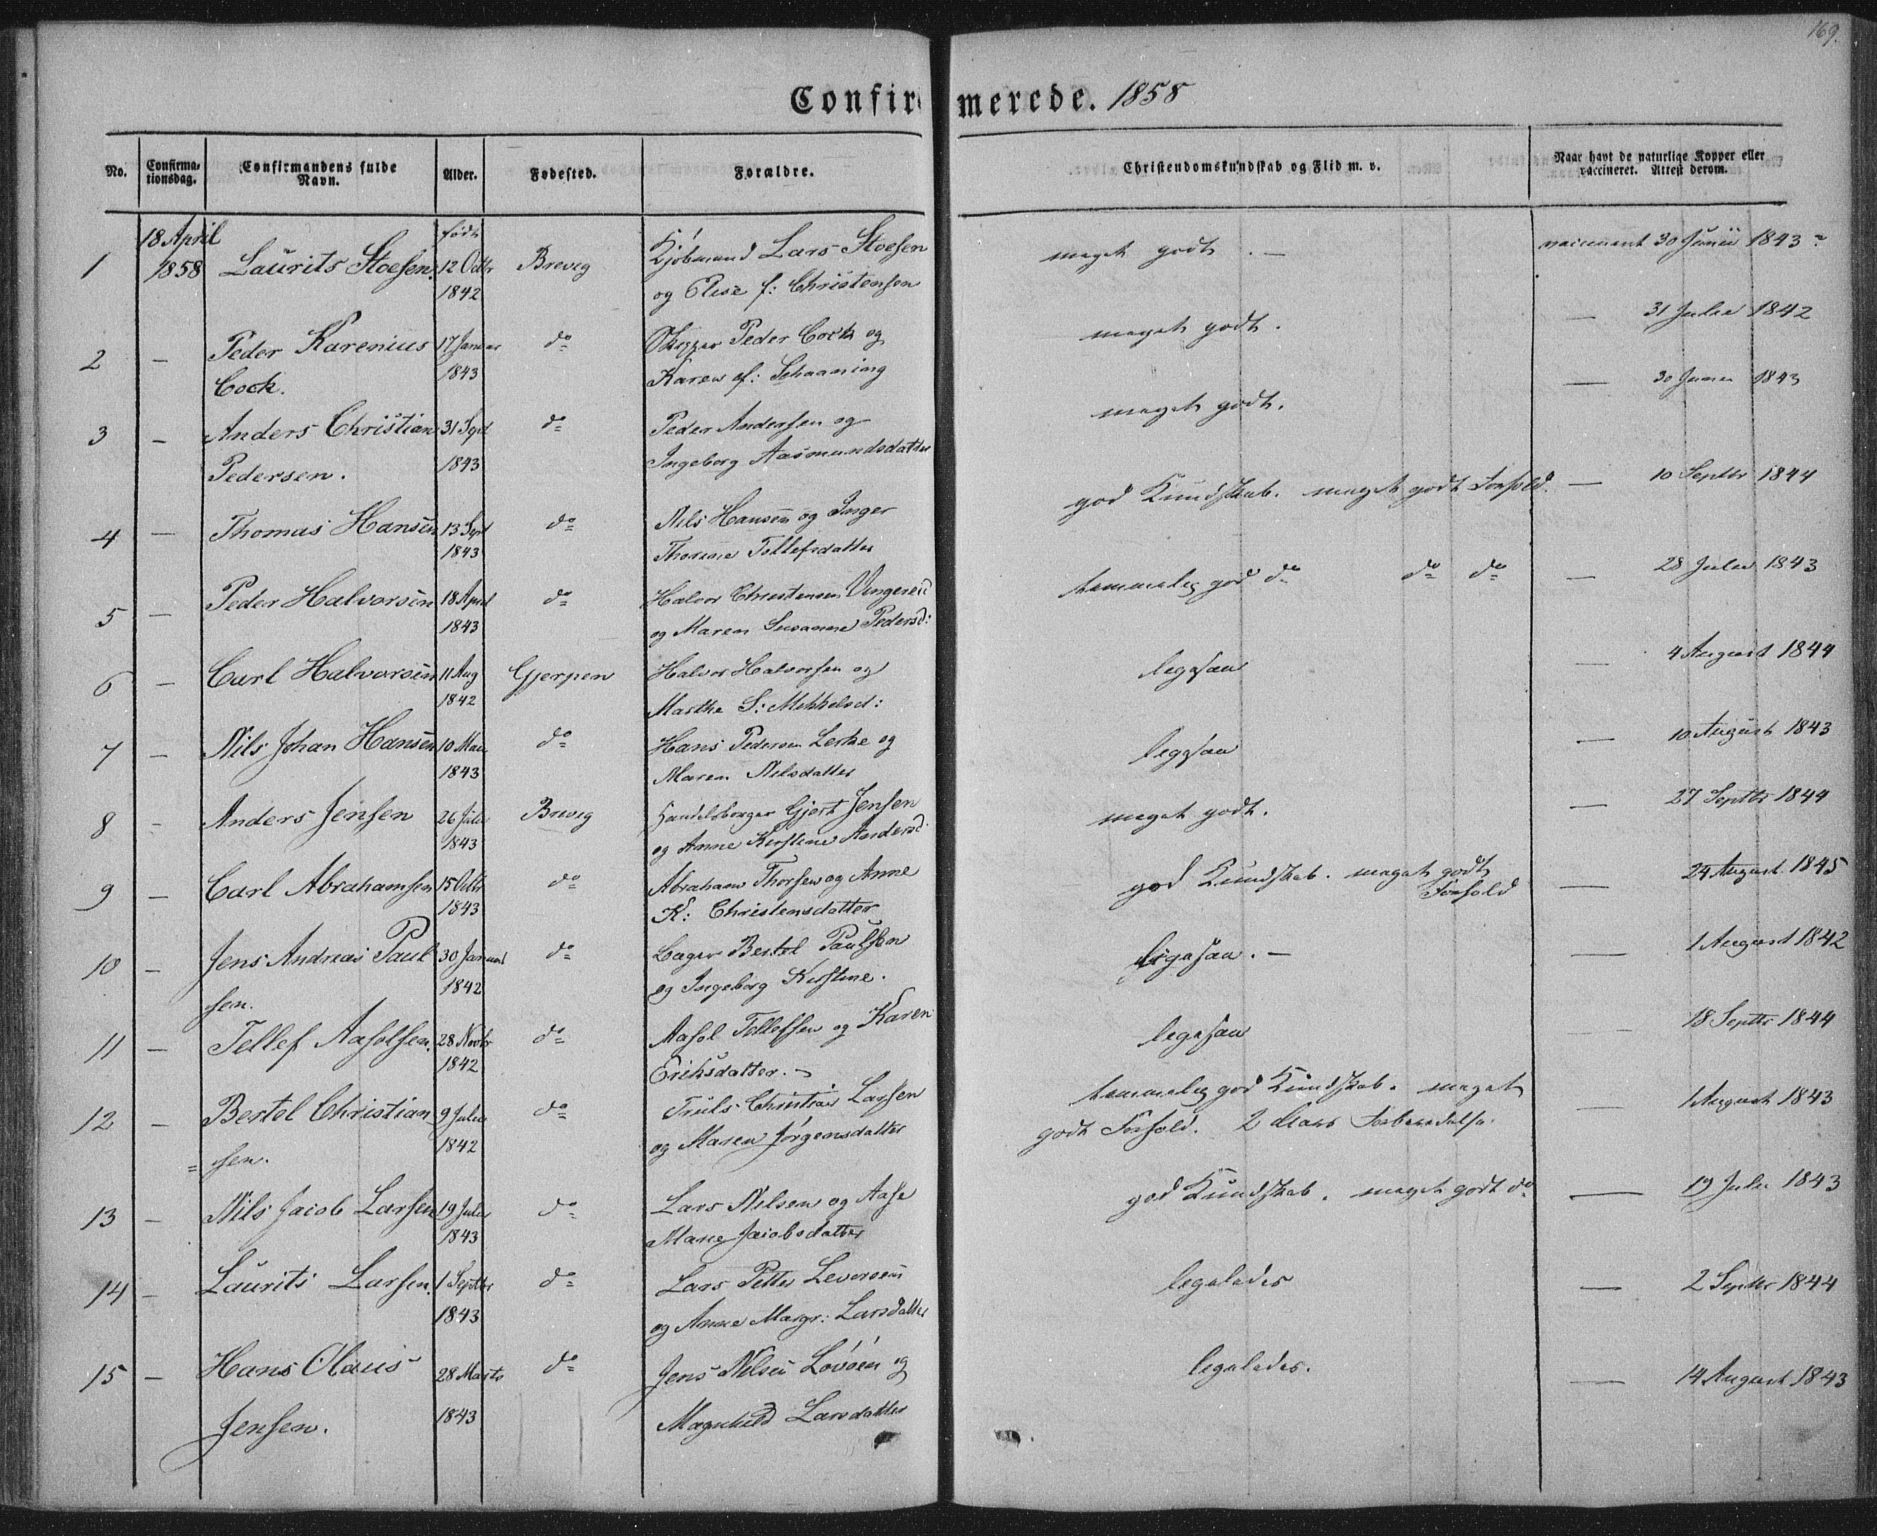 169.
Confirmerede. 1858
No. Confirma-tionsdag. Confirmandens fulde Navn. Alder. Fødested. Forældre. Christendomskundskab og Flid m. v. Naar havt de naturlige Kopper eller vaccineret. Attest derom.
18 April født
1 1858 Laurits Stoesen 12 Octbr 1842 Brevig Kjøbmand Lars Stoesen og Elise f: Christensen meget godt. — vaccineret 30 Junii 1843
2 — Peder Karenius Cock. 17 Januar 1843 do Skipper Peder Cock og Karen f: Schaaning meget godt. — 31 Julii 1842
3 — Anders Christian Pedersen. 31 Sept 1843 do Peder Andersen og Ingeborg Aasmundsdatter meget godt. — 30 Junii 1843
4 — Thomas Hansen 13 Sept 1843 do Nils Hansen og Inger Thorine Tollefsdatter god Kundskab. meget godt Forhold. — 10 Septbr 1844
5 — Peder Halvorsen 18 April 1843 do Halvor Christensen Vingereid og Maren Susanne Pedersd: temmelig god do do do — 28 Julii 1843
6 — Carl Halvorsen 11 Aug 1842 Gjerpen Halvor Halvorsen og Marthe S: Mikkelsd: ligesaa — 4 August 1844
7 — Nils Johan Hansen 10 Mai 1843 do Hans Pedersen Lerke og Maren Nilsdatter ligesaa — 10 August 1843
8 — Anders Jensen 26 Julii 1843 Brevig Handelsborger Gjert Jensen og Anne Kirstine Andersd: meget godt. — 27 Septbr 1844
9 — Carl Abrahamsen 15 Octbr 1843 do Abraham Thorsen og Anne K: Christensdatter god Kundskab. meget godt Forhold — 24 August 1845
10 — Jens Andreas Paulsen. 30 Januar 1842 do Bager Bertel Paulsen og Ingeborg Kirstine. ligesaa. — — 1 August 1842
11 — Tellef Aasolsen. 28 Novbr 1842 do Aasol Tellefsen og Karen Eriksdatter. — ligesaa — 18 Septbr 1844
12 — Bertel Christian=sen. 9 Julii 1842 do Truls Christian Larsen og Maren Jørgensdatter temmelig god Kundskab. meget godt Forhold. 2 Aars Forberedelse. — 1 August 1843
13 — Nils Jacob Larsen 19 Julii 1843 do Lars Nilsen og Aase Marie Jacobsdatter god Kundskab. meget godt do — 19 Julii 1843
14 — Laurits Larsen. 1 Septbr 1843 do Lars Petter Leversen og Anne Margr: Larsdatter ligeledes — 2 Septbr 1844
15 — Hans Olaus Jensen. 28 Marts 1843 do Jens Nilsen Lovøen og Magnhild Larsdatter ligeledes. — 14 August 1843